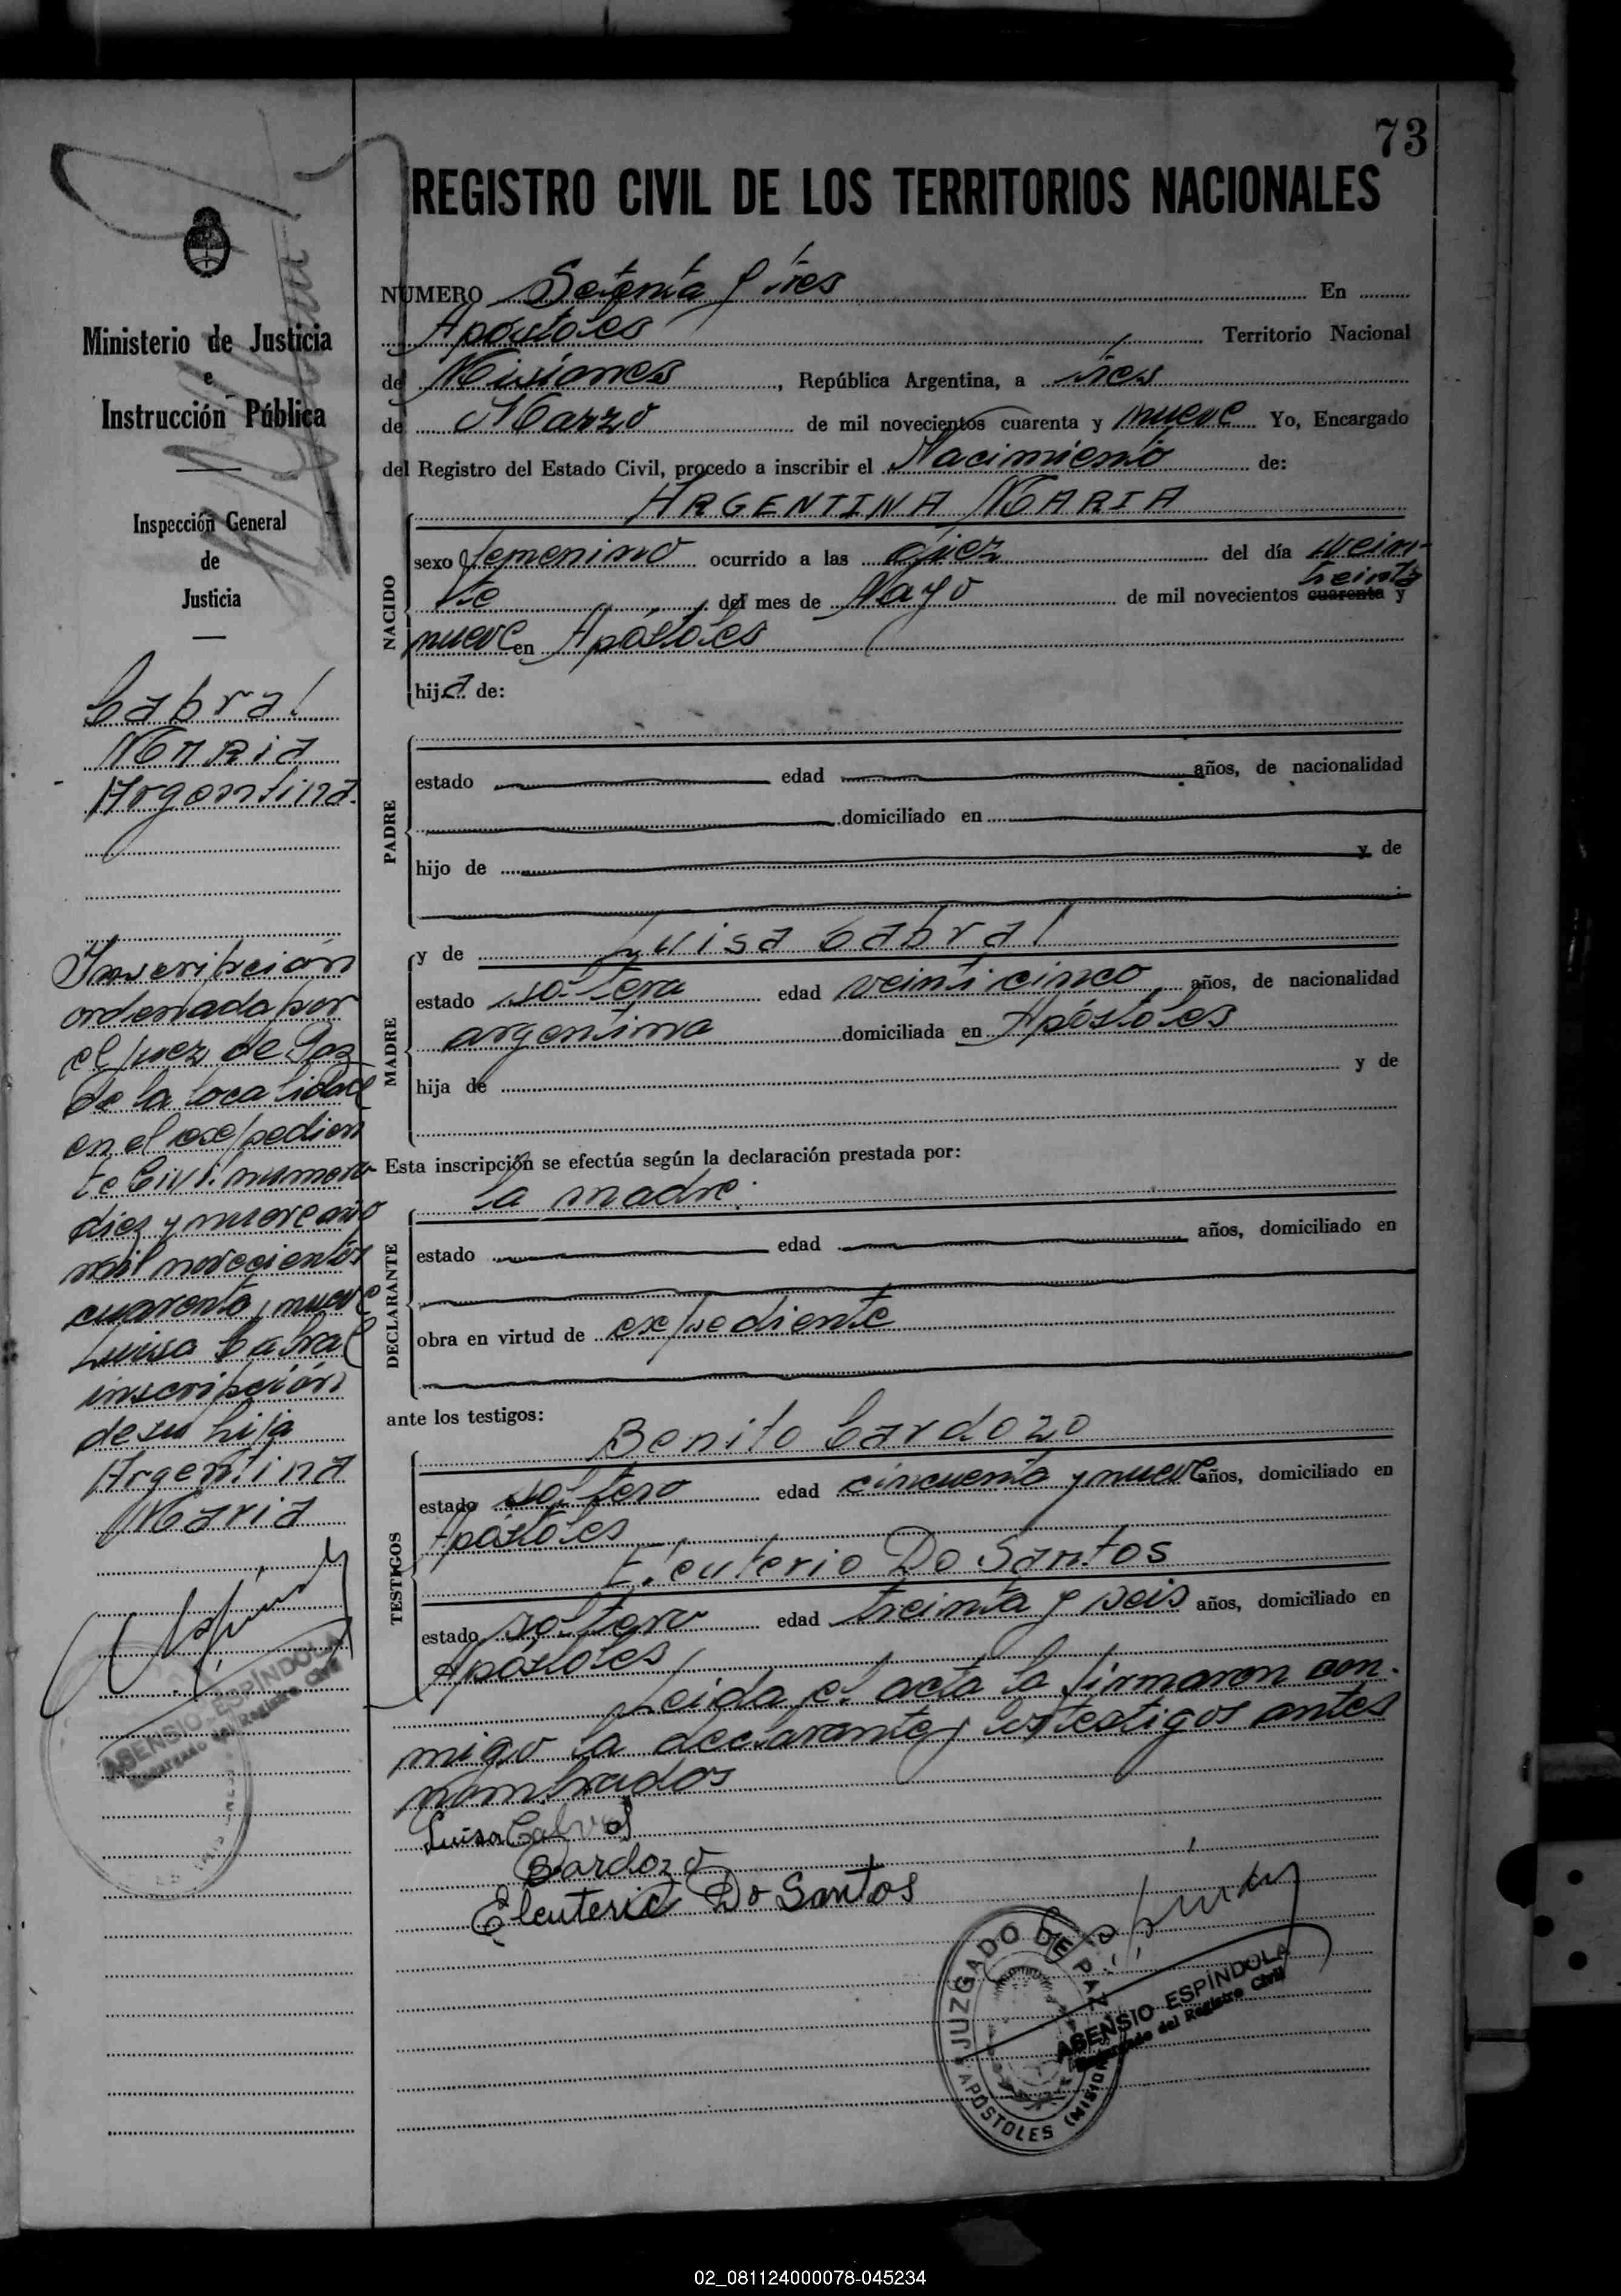 73
REGISTRO CIVIL DE LOS TERRITORIOS NACIONALES
Ministerio de Justicia
e
Instrucción Pública
Inspección General
de
Justicia
Cabral
Maria
Argentina.
Inscripción
ordenada por
el Juez de Paz
de la localidad
en el expedien
te Civil numero
diez y nueve año
mil novecientos
cuarenta y nueve
Luisa Cabral
inscripción
de su hija
Argentina
Maria
ASENSIO ESPÍNDOLA
Encargado del Registro Civil
NUMERO Setenta y tres En
Apóstoles Territorio Nacional
de Misiones, República Argentina, a tres
de Marzo de mil novecientos cuarenta y nueve Yo, Encargado
del Registro del Estado Civil, procedo a inscribir el Nacimiento de:
ARGENTINA MARIA
NACIDO
sexo femenino ocurrido a las diez del día vein-
te del mes de Mayo de mil novecientos cuarenta treinta y
nueve en Apóstoles
hija de:
PADRE
estado edad años, de nacionalidad
domiciliado en
hijo de y de
MADRE
y de Luisa Cabral
estado soltera edad veinticinco años, de nacionalidad
argentina domiciliada en Apóstoles
hija de y de
Esta inscripción se efectúa según la declaración prestada por:
la madre.
DECLARANTE
estado edad años, domiciliado en
obra en virtud de expediente
ante los testigos:
TESTIGOS
Benito Cardozo
estado soltero edad cincuenta y nueve años, domiciliado en
Apóstoles
Eleuterio Do Santos
estado soltero edad treinta y seis años, domiciliado en
Apóstoles
Leida el acta la firmaron con-
migo la declarante y los testigos antes
nombrados
Luisa Calvral
Cardozo
Eleuterio Do Santos
JUZGADO DE PAZ
APÓSTOLES (MISIONES)
ASENSIO ESPÍNDOLA
Encargado del Registro Civil
02_081124000078-045234